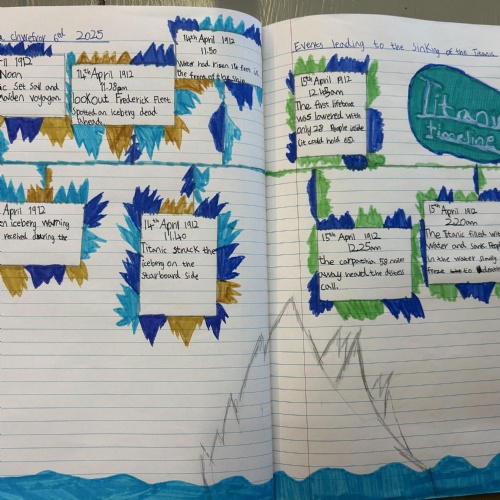 chwefror 2025
Noon
Set Sail and
maiden voyage.
14th April 1912
11:38pm
lookout Frederick Fleet
Spotted an iceberg dead
Ahead.
14th April 1912
11:50
Water had risen 14 feet in
the front of the Ship
April 1912
iceberg warning
received during the
14th April 1912
11:40
Titanic struck the
iceberg on the
starboard side
Events leading to the sinking of the Titanic
15th April 1912
12:45am
The first lifeboat
was lowered with
only 28 People inside
(it could hold 65)
Titanic
timeline
15th April 1912
12:25am
the carpathia 58 miles
away heard the distress
call.
15th April 1912
2:20am
The Titanic filled with
water and sank. People
in the water slowly
freeze to death